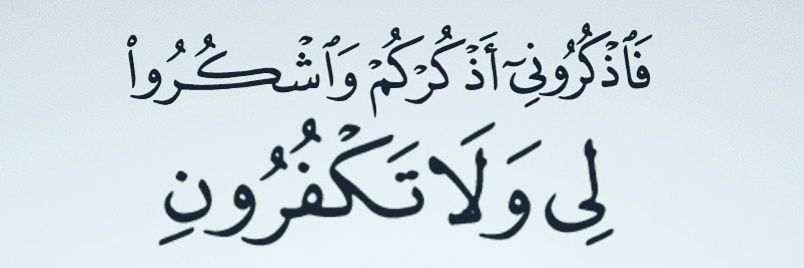 فَٱذْكُرُونِىٓ أَذْكُرْكُمْ وَٱشْكُرُوا۟
لِى وَلَا تَكْفُرُونِ